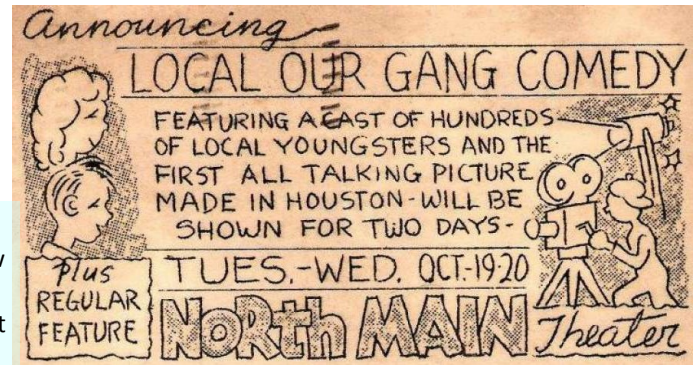 Announcing
LOCAL OUR GANG COMEDY
FEATURING A CAST OF HUNDREDS
OF LOCAL YOUNGSTERS AND THE
FIRST ALL TALKING PICTURE
MADE IN HOUSTON - WILL BE
SHOWN FOR TWO DAYS -
TUES.-WED. OCT.-19-20
Plus
REGULAR
FEATURE
NORTH MAIN Theater